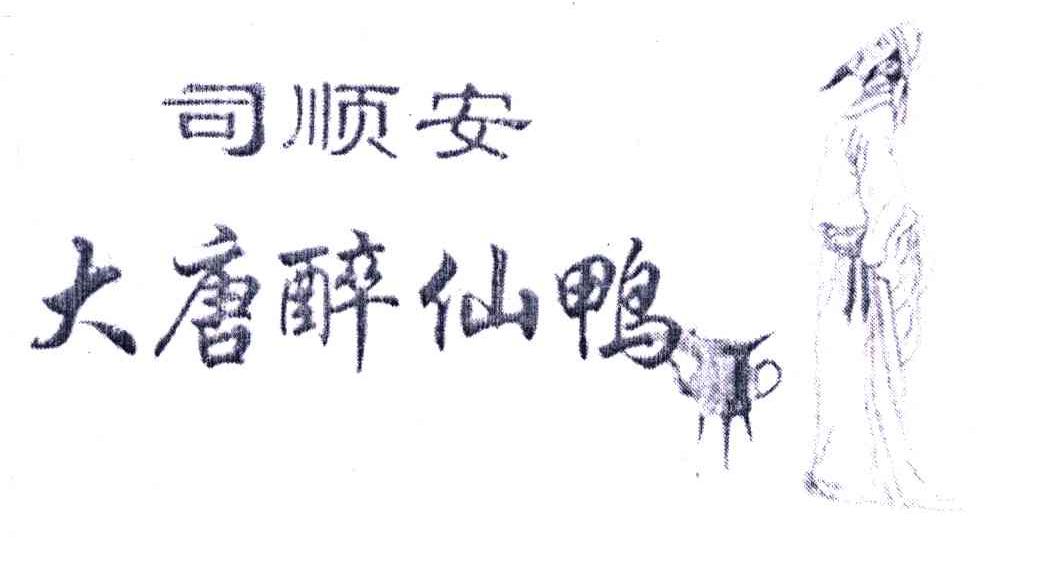 司顺安
大唐醉仙鸭